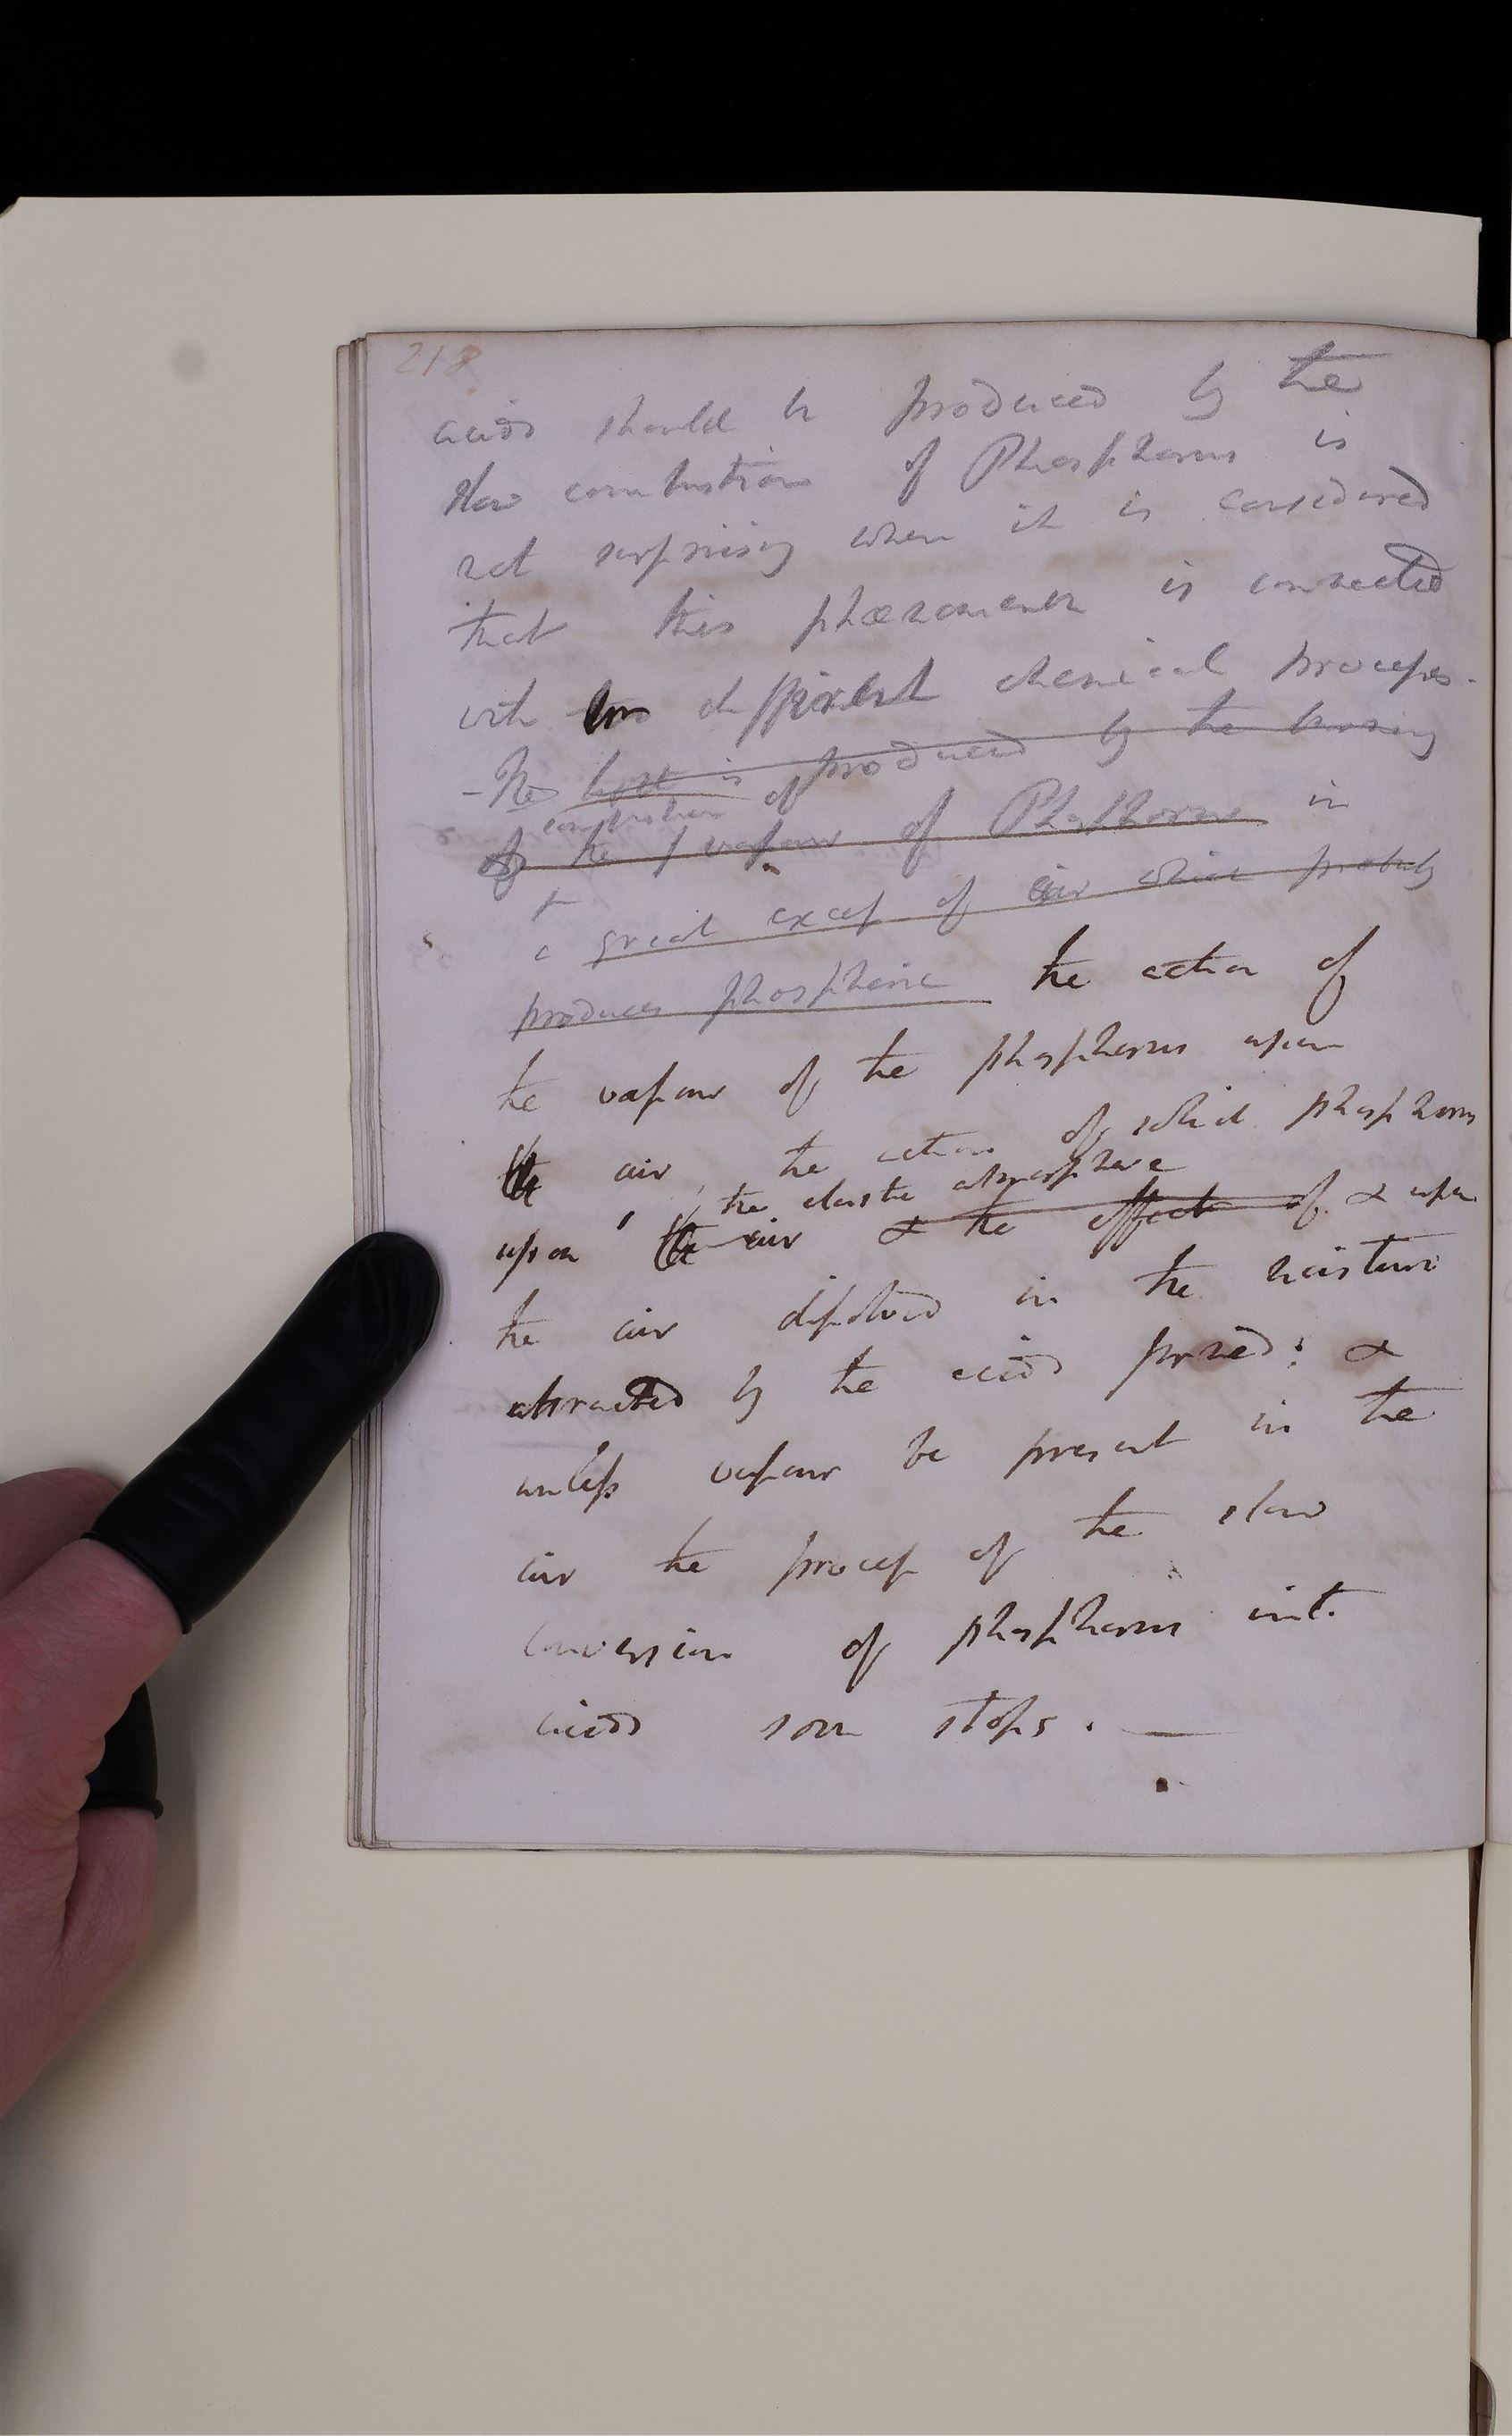 218
acids should be produced by the
slow combustion of Phosphorus is
not surprising when it is considered
that this phænomenon is connected
with different chemical processes.
- The first is produced by the burning
combustion of
of the vapour of Phosphorus in
a great excess of air which probably
produces phosphoric the action of
the vapour of the phosphorus upon
the air, the action of solid phosphorus
the elastic atmosphere
upon the air & the effect of & upon
the air dissolved in the moisture
attracted by the acids formed: &
unless vapour be present in the
air the process of the slow
conversion of phosphorus into
acids soon stops. —